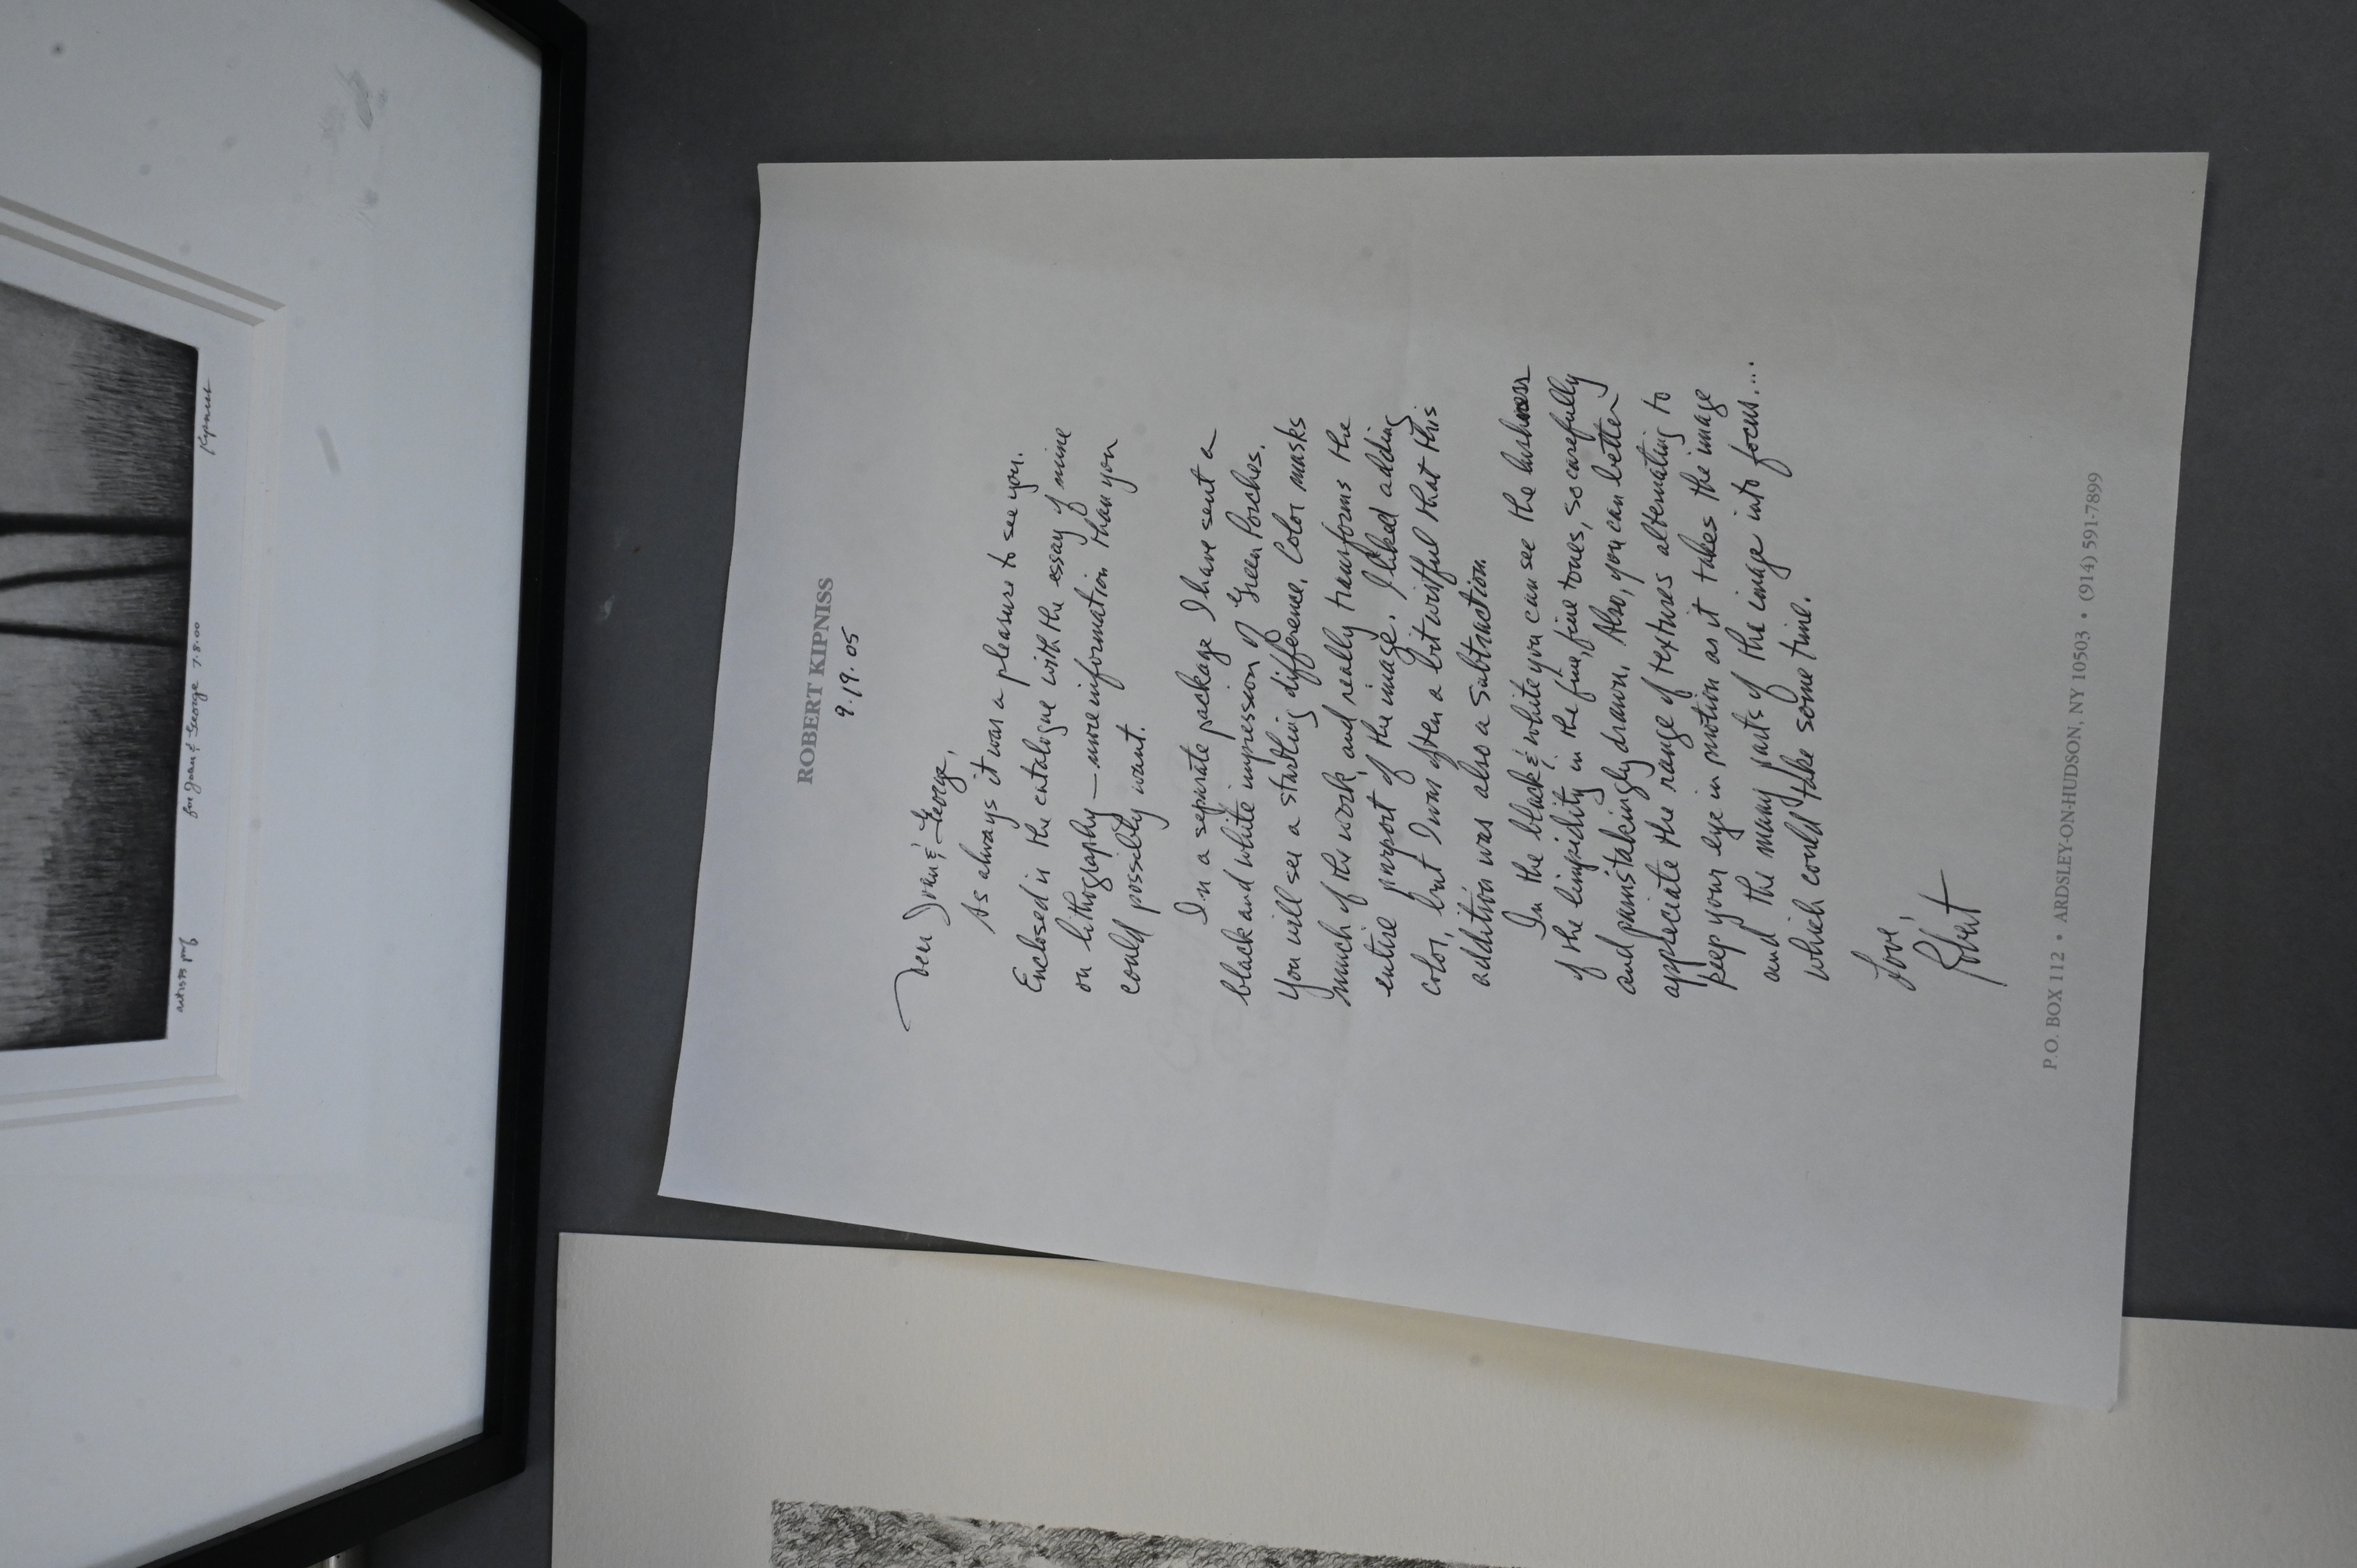 artist's proof for Joan & George 7.8.00 Kipniss
ROBERT KIPNISS
9.19.05
Dear Joan & George,
As always it was a pleasure to see you.
Enclosed is the catalogue with the essay of mine
on lithography — more information than you
could possibly want.
In a separate package I have sent a
black and white impression of Green Porches.
You will see a startling difference. Color masks
much of the work, and really transforms the
entire purport of the image. I liked adding
color, but I was often a bit wistful that this
addition was also a subtraction.
In the black & white you can see the lushness
of the limpidity in the fine, fine tones, so carefully
and painstakingly drawn. Also, you can better
appreciate the range of textures alternating to
keep your eye in motion as it takes the image
and the many parts of the image into focus...
which could take some time.
Love,
Robert
P.O. BOX 112 • ARDSLEY-ON-HUDSON, NY 10503 • (914) 591-7899